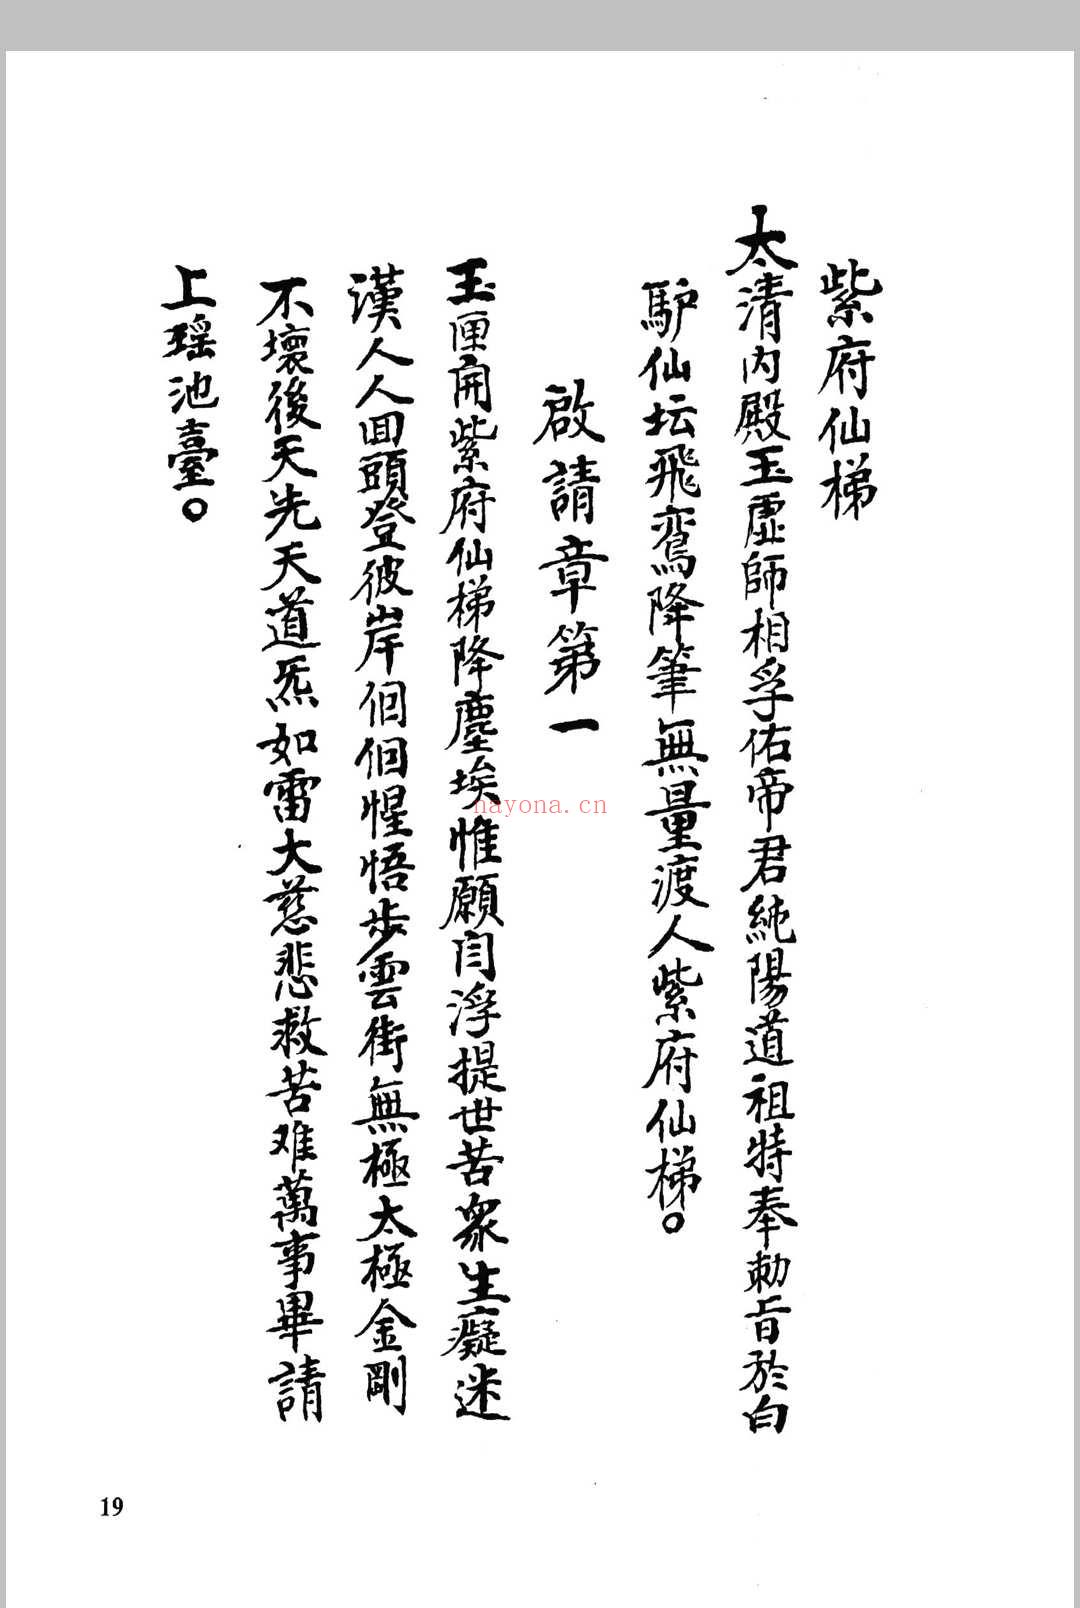 紫府仙梯
太清内殿玉虛師相孚佑帝君純陽道祖特奉勅旨於白
馿仙坛飛鸾降筆無量渡人紫府仙梯。
啟請章第一
玉匣開紫府仙梯降塵埃惟願閆浮提世苦衆生癡迷
漢人人回頭登彼岸個個惺悟步雲街無極太極金剛
不壞後天先天道炁如雷大慈悲救苦难萬事畢請
上瑶池臺。
nayona.cn
19